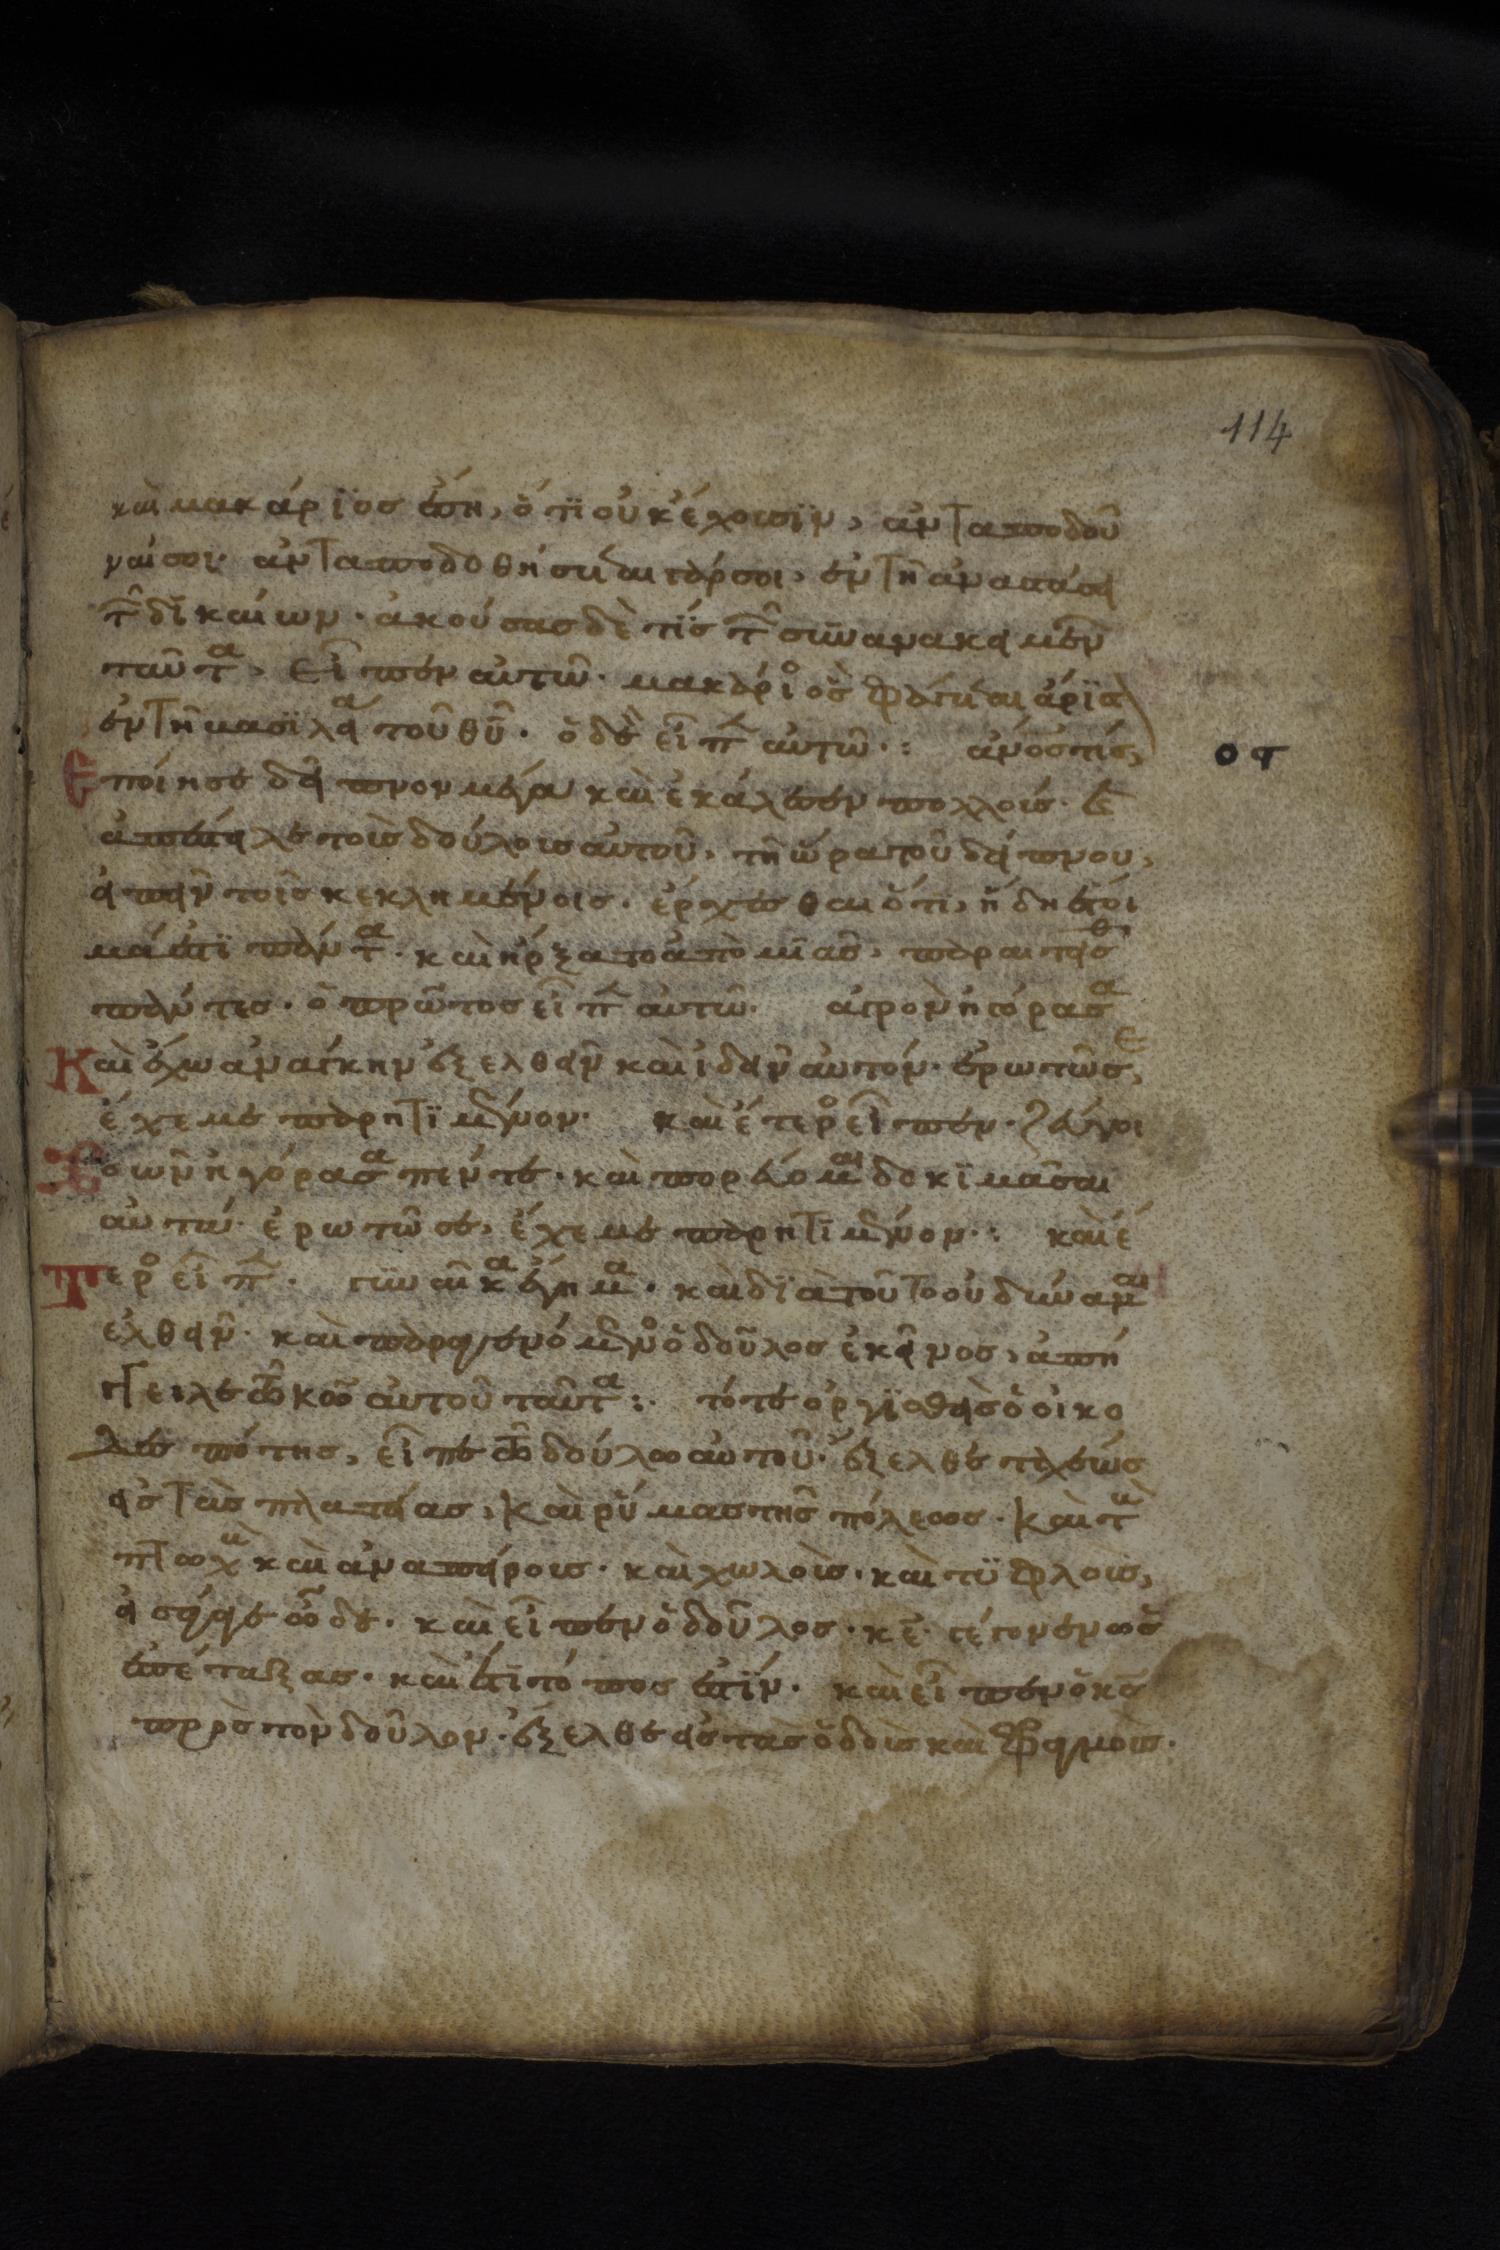 114
καὶ μακάριος ἔση, ὅτι οὐκ ἔχουσϊν, ἀνταποδοῦ
ναί σοι· ἀνταποδοθήσεται γάρ σοι, ἐν τῆ ἀναστάσει
τῶν δϊκαίων· ἀκούσας δέ τϊς τῶν συνανακειμένων
ταῦτα, εἶπεν αὐτῶ· μακάριος ὃς φάγεται ἄρϊστον
ἐν τῆ βασϊλεία τοῦ θυ· ὁ δὲ εἶπεν αὐτῶ·: ἄνος τίς,
ἐποίησε δεῖπνον μέγα καὶ ἐκάλεσεν πολλούς· καὶ
ος
ἀπέστειλε τοὺς δούλους αὐτοῦ, τῆ ὥρα τοῦ δείπνου,
εἰπεῖν τοῖς κεκλημένοις· ἔρχεσθαι ὅτι, ἤδη ἕτοι
μά ἐστϊ πάντα· καὶ ἤρξατο ἀπὸ μϊᾶς, παραιτεῖσθαι
πάντες· ὁ πρῶτος εἶπεν αὐτῶ· ἀγρὸν ἠγόρασα
Καὶ ἔχω ἀνάγκην ἐξελθεῖν καὶ ἰδεῖν αὐτόν· ἐρωτῶ σε,
ἔχε με παρητϊμένον· καὶ ἕτερος εἶπεν· ζεύγη
βοῶν ἠγόρασα πέντε· καὶ πορεύομαι δοκϊμάσαι
αὐτά· ἐρωτῶ σε, ἔχε με παρητϊμένον·: καὶ ἕ
Τερος εἶπεν· γυναῖκα ἔγημα· καὶ δϊὰ τοῦτο οὐ δύναμαι
ἐλθεῖν· καὶ παραγενόμενος ὁ δοῦλος ἐκεῖνος, ἀπή
γγειλε τῶ κω αὐτοῦ ταῦτα:· τότε ὀργϊσθεὶς ὁ οἰκο
δεσπότης, εἶπε τῶ δούλω αὐτοῦ· ἔξελθε ταχέως
εἰς τὰς πλατείας, καὶ ρύμας τῆς πόλεως· καὶ τοὺς
πτωχοὺς καὶ ἀναπήρους· καὶ χωλοὺς· καὶ τϋφλοὺς,
εἰσάγαγε ὧδε· καὶ εἶπεν ὁ δοῦλος· κε· γέγονεν ὡς
ἐπέταξας· καὶ ἔτι τόπος ἐστϊν· καὶ εἶπεν ὁ κς
πρὸς τὸν δοῦλον· ἔξελθε εἰς τὰς ὁδοὺς καὶ φραγμοὺς·